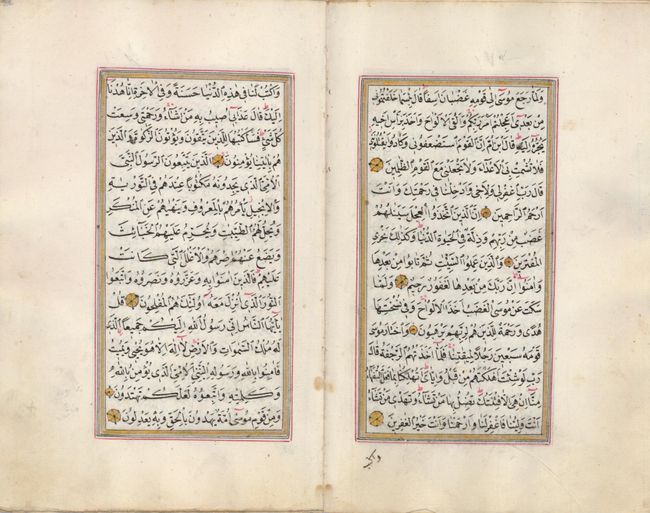 وَلَمَّا رَجَعَ مُوسٰى اِلٰى قَوْمِهٖ غَضْبَانَ اَسِفًا قَالَ بِئْسَمَا خَلَفْتُمُونٖى
مِنْ بَعْدٖى اَعَجِلْتُمْ اَمْرَ رَبِّكُمْ وَاَلْقَى الْاَلْوَاحَ وَاَخَذَ بِرَاْسِ اَخٖيهِ
يَجُرُّهُ اِلَيْهِ قَالَ ابْنَ اُمَّ اِنَّ الْقَوْمَ اسْتَضْعَفُونٖى وَكَادُوا يَقْتُلُونَنٖى
فَلَا تُشْمِتْ بِىَ الْاَعْدَاءَ وَلَا تَجْعَلْنٖى مَعَ الْقَوْمِ الظَّالِمٖينَ
قَالَ رَبِّ اغْفِرْ لٖى وَلِاَخٖى وَاَدْخِلْنَا فٖى رَحْمَتِكَ وَاَنْتَ
اَرْحَمُ الرَّاحِمٖينَ اِنَّ الَّذٖينَ اتَّخَذُوا الْعِجْلَ سَيَنَالُهُمْ
غَضَبٌ مِنْ رَبِّهِمْ وَذِلَّةٌ فِى الْحَيٰوةِ الدُّنْيَا وَكَذٰلِكَ نَجْزِى
الْمُفْتَرٖينَ وَالَّذٖينَ عَمِلُوا السَّيِّـَٔاتِ ثُمَّ تَابُوا مِنْ بَعْدِهَا
وَاٰمَنُوا اِنَّ رَبَّكَ مِنْ بَعْدِهَا لَغَفُورٌ رَحٖيمٌ وَلَمَّا
سَكَتَ عَنْ مُوسَى الْغَضَبُ اَخَذَ الْاَلْوَاحَ وَفٖى نُسْخَتِهَا
هُدًى وَرَحْمَةٌ لِلَّذٖينَ هُمْ لِرَبِّهِمْ يَرْهَبُونَ وَاخْتَارَ مُوسٰى
قَوْمَهُ سَبْعٖينَ رَجُلًا لِمٖيقَاتِنَا فَلَمَّا اَخَذَتْهُمُ الرَّجْفَةُ قَالَ
رَبِّ لَوْ شِئْتَ اَهْلَكْتَهُمْ مِنْ قَبْلُ وَاِيَّاىَ اَتُهْلِكُنَا بِمَا فَعَلَ السُّفَهَاءُ
مِنَّا اِنْ هِىَ اِلَّا فِتْنَتُكَ تُضِلُّ بِهَا مَنْ تَشَاءُ وَتَهْدٖى مَنْ تَشَاءُ
اَنْتَ وَلِيُّنَا فَاغْفِرْ لَنَا وَارْحَمْنَا وَاَنْتَ خَيْرُ الْغَافِرٖينَ
وَاكْتُبْ لَنَا فٖى هٰذِهِ الدُّنْيَا حَسَنَةً وَفِى الْاٰخِرَةِ اِنَّا هُدْنَا
اِلَيْكَ قَالَ عَذَابٖى اُصٖيبُ بِهٖ مَنْ اَشَاءُ وَرَحْمَتٖى وَسِعَتْ
كُلَّ شَىْءٍ فَسَاَكْتُبُهَا لِلَّذٖينَ يَتَّقُونَ وَيُؤْتُونَ الزَّكٰوةَ وَالَّذٖينَ
هُمْ بِاٰيَاتِنَا يُؤْمِنُونَ اَلَّذٖينَ يَتَّبِعُونَ الرَّسُولَ النَّبِىَّ
الْاُمِّىَّ الَّذٖى يَجِدُونَهُ مَكْتُوبًا عِنْدَهُمْ فِى التَّوْرٰيةِ
وَالْاِنْجٖيلِ يَاْمُرُهُمْ بِالْمَعْرُوفِ وَيَنْهٰيهُمْ عَنِ الْمُنْكَرِ
وَيُحِلُّ لَهُمُ الطَّيِّبَاتِ وَيُحَرِّمُ عَلَيْهِمُ الْخَبَائِثَ
وَيَضَعُ عَنْهُمْ اِصْرَهُمْ وَالْاَغْلَالَ الَّتٖى كَانَتْ
عَلَيْهِمْ فَالَّذٖينَ اٰمَنُوا بِهٖ وَعَزَّرُوهُ وَنَصَرُوهُ وَاتَّبَعُوا
النُّورَ الَّذٖى اُنْزِلَ مَعَهُ اُولٰئِكَ هُمُ الْمُفْلِحُونَ قُلْ
يَا اَيُّهَا النَّاسُ اِنّٖى رَسُولُ اللّٰهِ اِلَيْكُمْ جَمٖيعًا الَّذٖى
لَهُ مُلْكُ السَّمٰوَاتِ وَالْاَرْضِ لَا اِلٰهَ اِلَّا هُوَ يُحْيٖى وَيُمٖيتُ
فَاٰمِنُوا بِاللّٰهِ وَرَسُولِهِ النَّبِىِّ الْاُمِّىِّ الَّذٖى يُؤْمِنُ بِاللّٰهِ
وَكَلِمَاتِهٖ وَاتَّبِعُوهُ لَعَلَّكُمْ تَهْتَدُونَ
وَمِنْ قَوْمِ مُوسٰى اُمَّةٌ يَهْدُونَ بِالْحَقِّ وَبِهٖ يَعْدِلُونَ